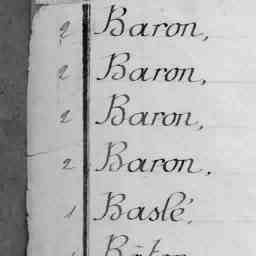 2 Baron,
2 Baron,
2 Baron,
2 Baron.
1 Baslé,